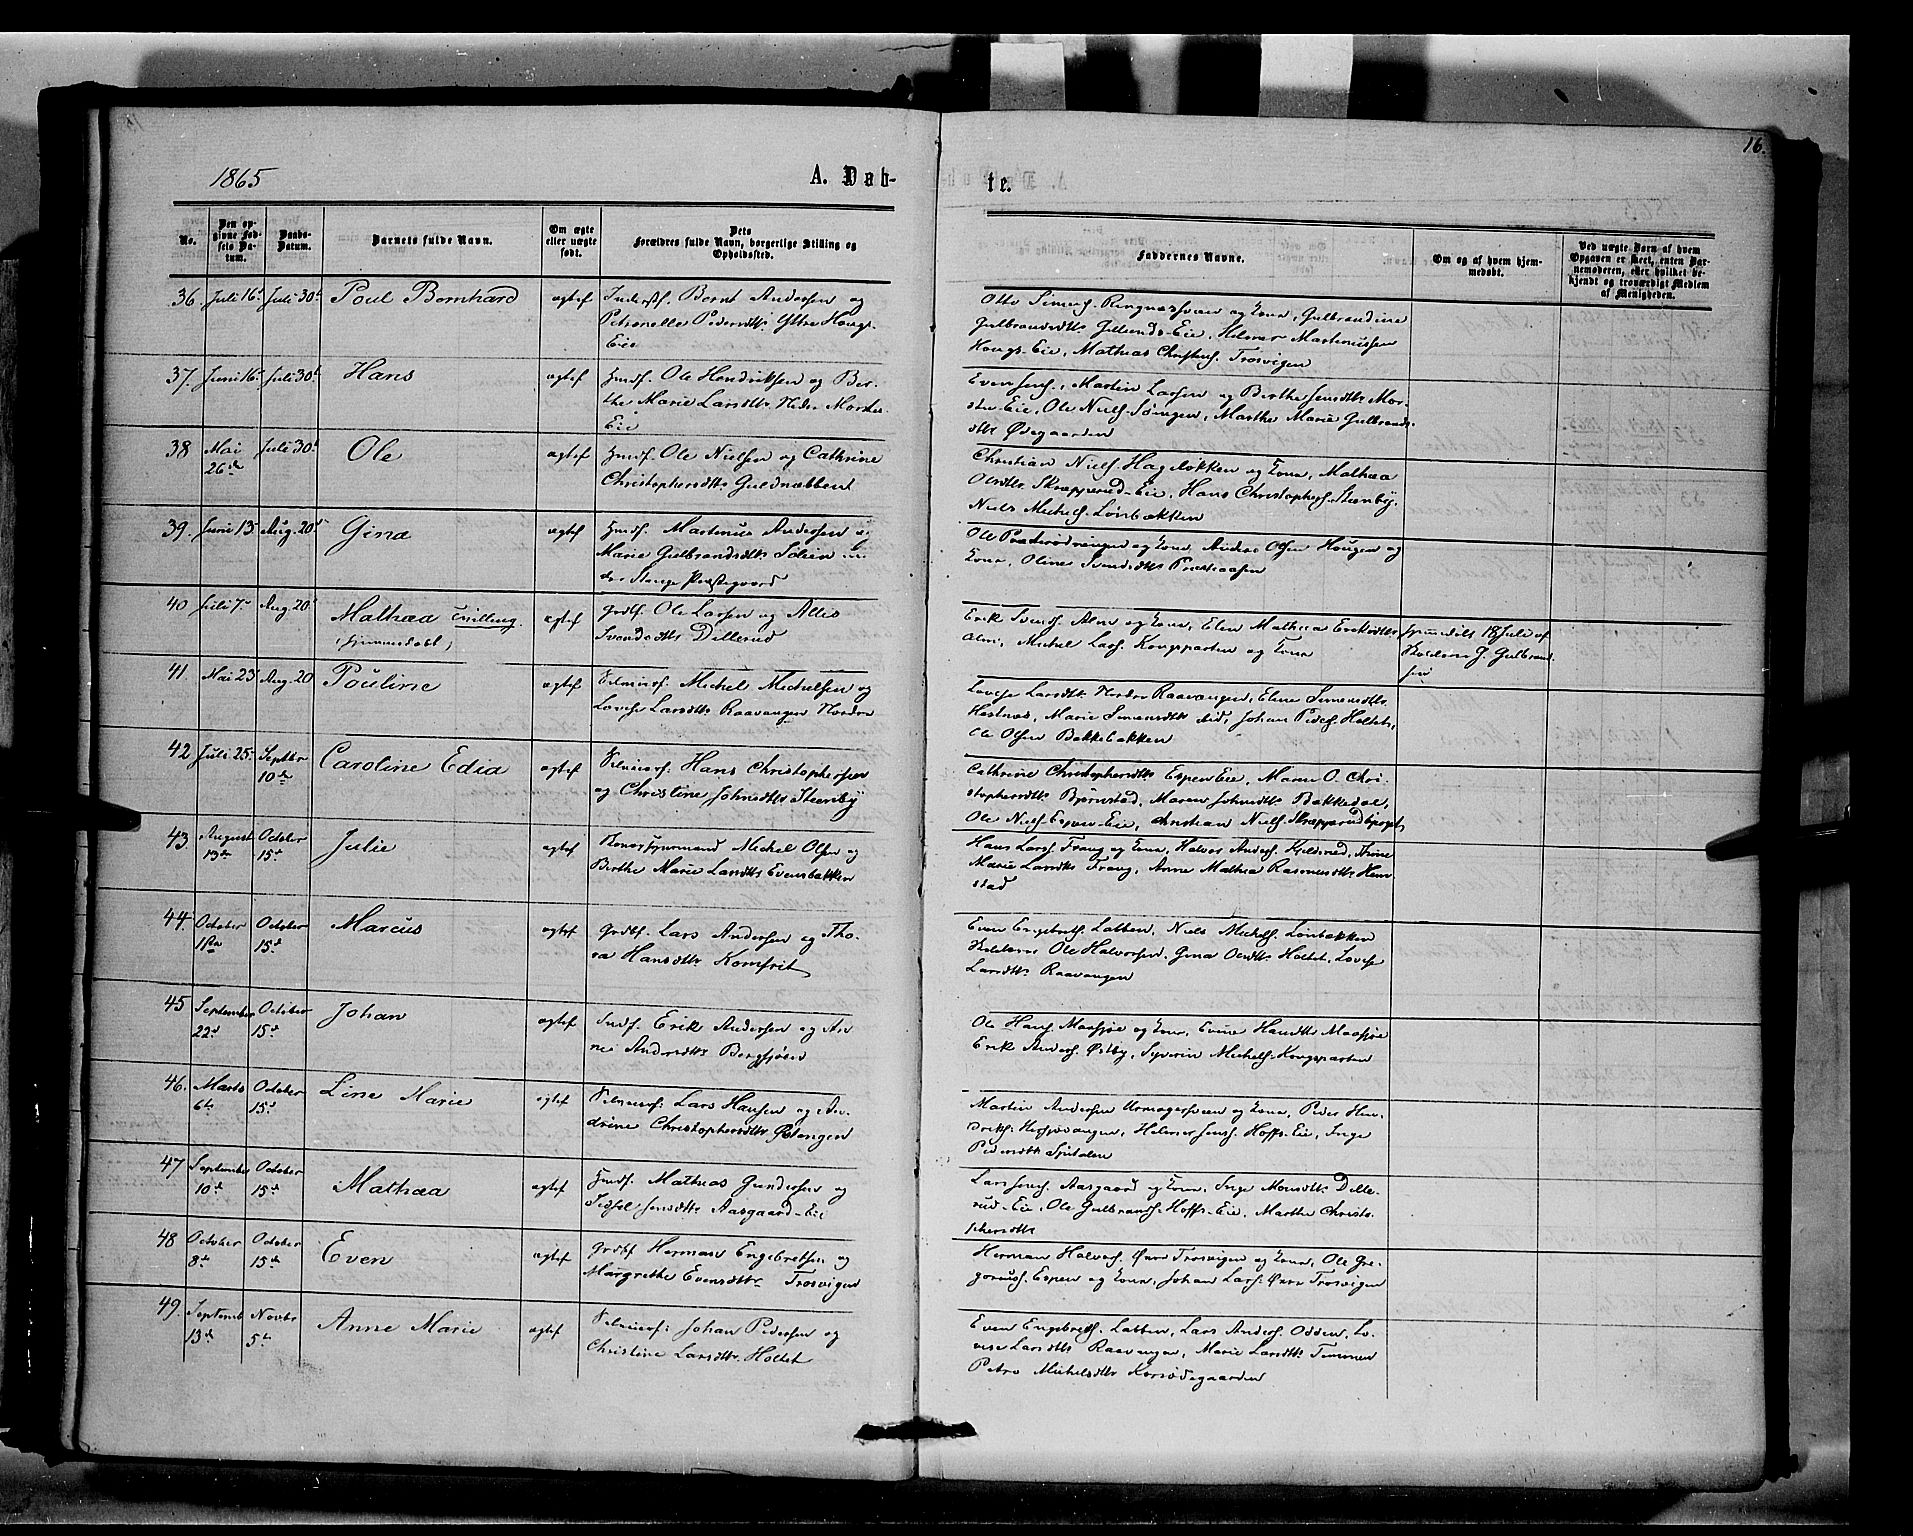 16.
1865
A. Døb-
te.
No.
Den opgivne Fødsels Datum.
Daabs-Datum.
Barnets fulde Navn.
Om ægte eller uægte født.
Dets Forældres fulde Navn, borgerlige Stilling og Opholdssted.
Faddernes Navne.
Om og af hvem hjemmedøbt.
Ved uægte Barn af hvem Opgaven er skeet, enten Barnemoderen, eller hvilket bekjendt og troværdigt Medlem af Menigheden.
36 Juli 16d Juli 30d Poul Bernhard ægtef Inderstf. Bernt Andersen og
Petronelle Pedersdtr Yttre Hougs
Eie
Otto Simens. Ringnæssveen og Kone, Gulbrandine
Gulbrandsdtr Gillunds-Eie, Helmer Martinussen
Hougs-Eie, Mathias Christens. Trosvigen
37. Juni 16d Juli 30d Hans ægtef Husmf. Ole Hendriksen og Ber-
the Marie Larsdtr Nedre Morsten
Eie
Even Jens., Martin Larsen og Berthe Jensdtr Mor-
sten Eie, Ole Niels. Sønsgen, Marthe Marie Gulbrands-
dtr Ødegaarden
38 Mai 26de Juli 30d Ole ægtef Husmf. Ole Nielsen og Cathrine
Christophersdtr Guldnæbbent
Christian Niels. Hageløkken og Kone, Mathea
Olsdtr Skræpperud-Eie, Hans Christophs. Steenby,
Niels Michels. Lønbækken
39. Juni 13 Aug. 20d Gina ægtef Husmf. Martinus Andersen og
Marie Gulbrandsdtr Solein un-
der Stange Præstegaard
Kone, Oline Svendsdtr Præsteaasen
40 Juli 7d Aug. 20d Mathea Tvilling ægtef Grdbf. Ole Larsen og Alles
(hjemmedøbt)
Svendsdtr Dillerud
Erik Svends. Alm og Kone, Elen Mathea Eriksdtr
Alm, Michel Lars. Kongsparten og Kone
hjemmedøbt 18 Juli af
Skolelærer J. Gulbrand-
sen
41. Mai 23 Aug. 20 Pouline ægtef Selveierf. Michel Michelsen og
Lovise Larsdtr Raavangen Nordre
Lovise Larsdtr Nordre Raavangen, Eline Simensdtr
Hestnes, Marie Simensdtr ibid, Johan Peders. Holtet,
Ole Olsen Bakkebakken
42 Juli 25 Septber 10de Caroline Edia ægtef Selveierf. Hans Christophersen
og Christine Johnsdtr Steenby
Cathrine Christophersdtr Espen Eie, Maren O. Chri-
stophersdtr Bjørnstad, Maren Johnsdtr Bakkedal,
Ole Niels. Espen-Eie, Christian Niels. Skræpperudbjerget
43. August 13de October 15d Julie ægtef Michel Olsen og
Berthe Marie Larsdtr Evensbakken
Hans Lars. Frang og Kone, Halvor Anders. Kjelsrud, Thrine
Marie Larsdtr Frang, Anne Mathea Rasmusdtr Hem-
stad
44. October 1ste October 15d Marcus ægtef Grdbf. Lars Andersen og Tho-
ra Hansdtr Kornfrit
Even Engebreths. Labben, Niels Michels. Lønbakken
Skolelærer Ole Halvorsen, Gina Olsdtr Holtet, Lovise
Larsdtr Raavangen
45 September 22d October 15d Johan ægtef Indf. Erik Andersen og An-
ne Andersdtr Bergsjøen
Ole Hans. Maassøe og Kone, Evine Hansdtr Maassøe
Erik Anders. Østby, Syverin Michels. Kongsparten
46. Marts 6te October 15d Line Marie ægtef Selveierf. Lars Hansen og An-
drine Christophersdtr Østengen
Martin Andersen Urmagersveen og Kone, Peder Hen-
driks. Hersjøvangen, Helmer Jens. Hoffs-Eie, Inge
Pedersdtr Spitalen
47 September 10d October 15d Mathea ægtef Husmf. Mathias Gundersen og
Sidsel Jensdtr Aasgaard-Eie
Lars Jens. Aasgaard og Kone, Inge Monsdtr Dille-
rud-Eie, Ole Gulbrands. Hoffs-Eie, Marthe Christo-
phersdtr
48 October 8de October 15de Even ægtef Grdbf Herman Engebretsen og
Margrethe Evensdtr Trosvigen
Herman Halvors. Øvre Trosvigen og Kone, Ole Gre-
goriuss. Espen og Kone, Johan Lars. Øvre Trosvigen
49. Septemb 13de Novbr 5te Anne Marie ægtef Selveierf. Johan Pedersen og
Christine Larsdtr. Holtet
Even Engebreths. Labben, Lars Anders. Odden, Lo-
vise Larsdtr Raavangen, Marie Larsdtr Timmen
Petra Michelsdtr Korsødegaarden